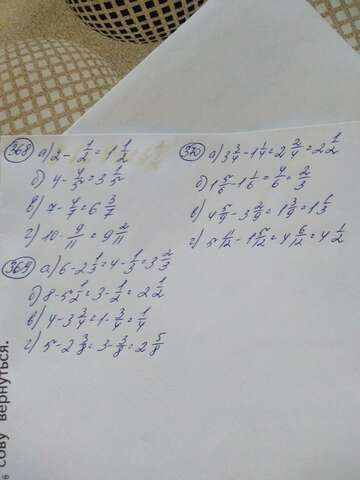 368 а) 2 - 1/2 = 1 1/2
б) 4 - 4/5 = 3 1/5
в) 7 - 4/7 = 6 3/7
г) 10 - 9/11 = 9 2/11
369 а) 6 - 2 1/3 = 4 - 1/3 = 3 2/3
б) 8 - 5 1/2 = 3 - 1/2 = 2 1/2
в) 4 - 3 3/4 = 1 - 3/4 = 1/4
г) 5 - 2 3/8 = 3 - 3/8 = 2 5/8
370 а) 3 3/4 - 1 1/4 = 2 2/4 = 2 1/2
б) 1 5/6 - 1 1/6 = 4/6 = 2/3
в) 4 5/9 - 3 2/9 = 1 3/9 = 1 1/3
г) 5 11/12 - 1 5/12 = 4 6/12 = 4 1/2
сову вернуться.
6